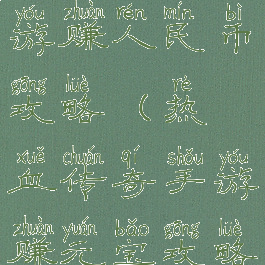 yóu zhuàn rén mín bì
游赚人民币
gōng lüè rè
攻略（热
xuè chuán qí shǒu yóu
血传奇手游
zhuàn yuán bǎo gōng lüè
赚元宝攻略